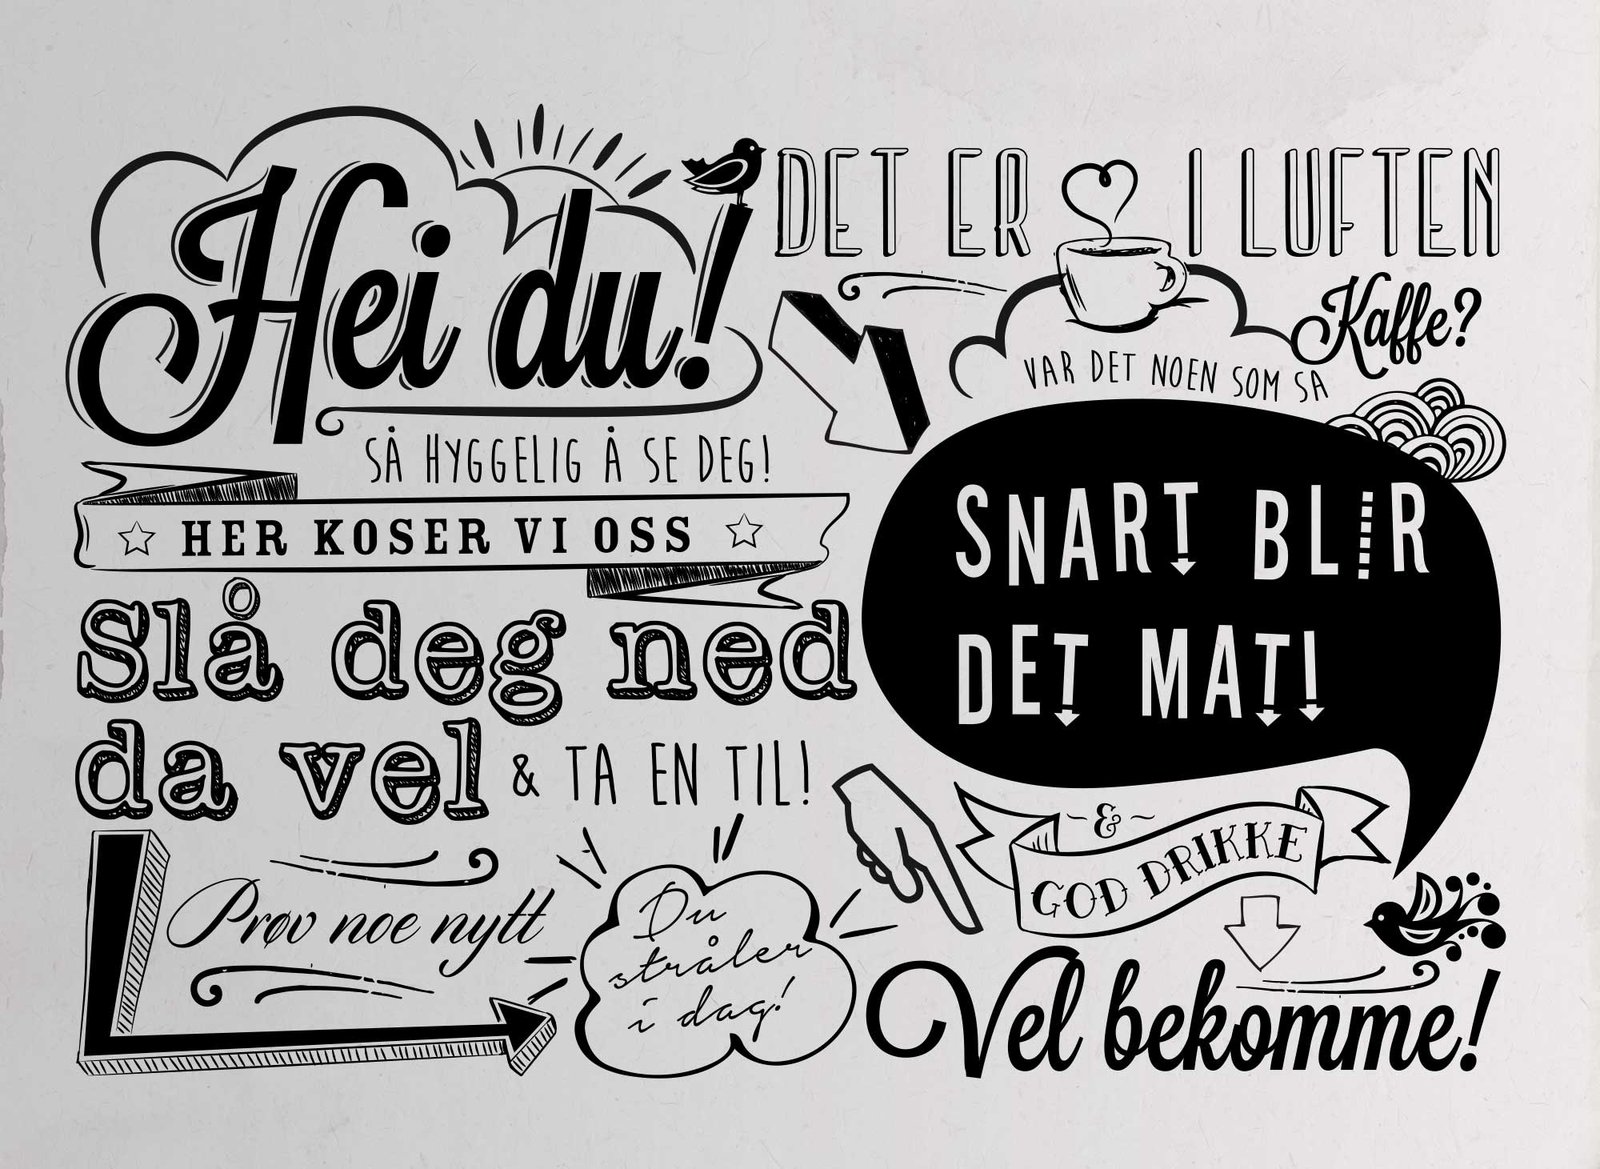 Hei du!
SÅ HYGGELIG Å SE DEG!
HER KOSER VI OSS
Slå deg ned
da vel & TA EN TIL!
Prøv noe nytt
Du
stråler
i dag!
DET ER I LUFTEN
VAR DET NOEN SOM SA
Kaffe?
SNART BLIR
DET MAT!
&
GOD DRIKKE
Vel bekomme!